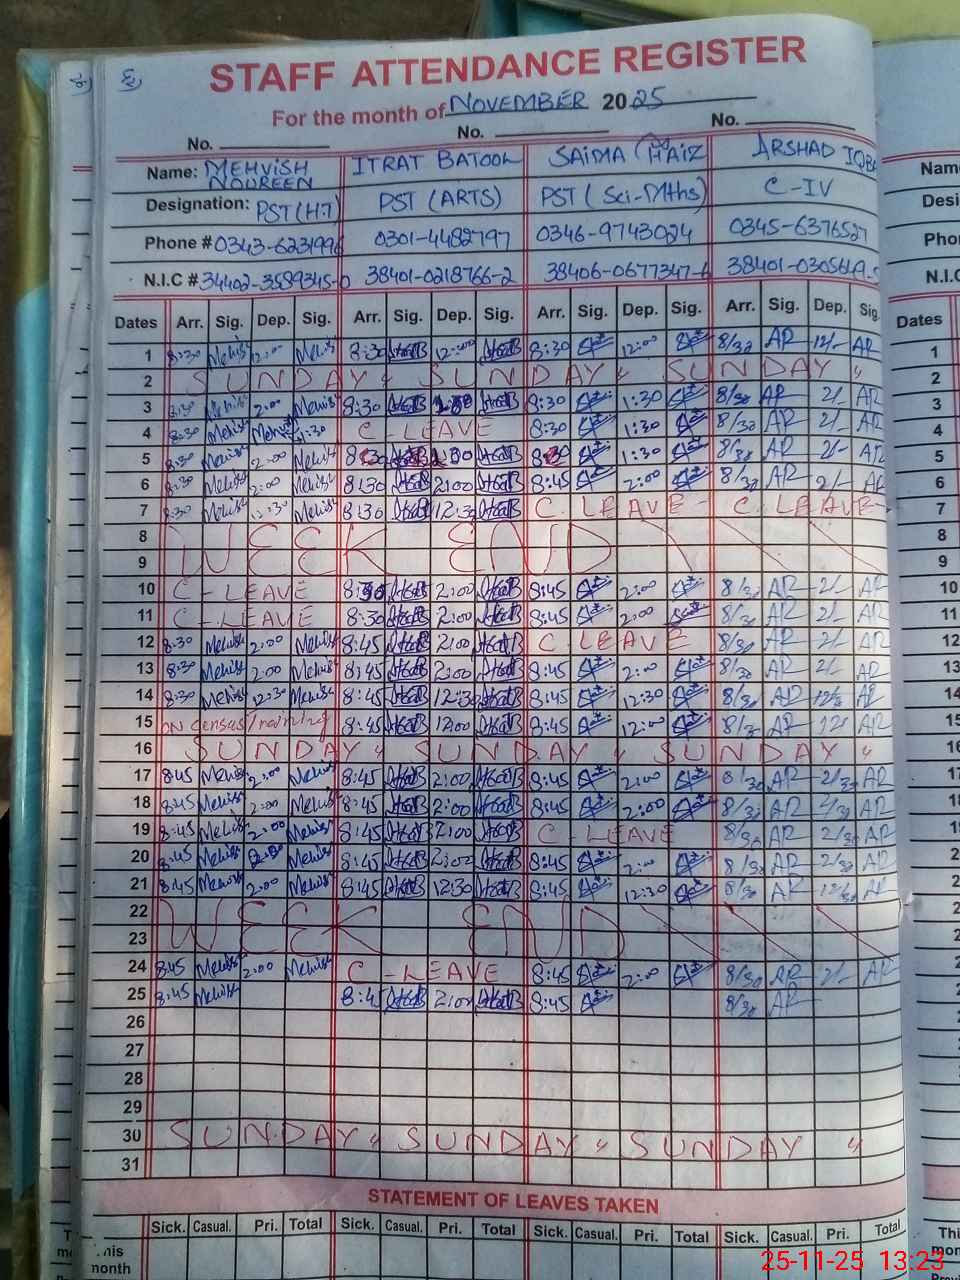 STAFF ATTENDANCE REGISTER
For the month of NOVEMBER 2025
No. No. No.
Name: MEHVISH NOUREEN ITRAT BATOOL SAIMA ARSHAD IQBA
Designation: PST (H.T) PST (ARTS) PST (Sci-Mths) C-IV
Phone # 0343-6231996 0301-4482797 0346-9743024 0345-6376527
N.I.C # 34402-3589345-0 38401-0218766-2 38406-0677347-6 38401-0305649-5
Dates Arr. Sig. Dep. Sig. Arr. Sig. Dep. Sig. Arr. Sig. Dep. Sig. Arr. Sig. Dep. Sig.
1 8:30 Mehvish 12:00 Mehvish 8:30 12:00 8:30 12:00 8/30 AR 12/- AR
2 SUNDAY " SUNDAY " SUNDAY "
3 8:30 Mehvish 2:00 Mehvish 8:30 8:30 1:30 8/30 AR 2/- AR
4 8:30 Mehvish C-LEAVE 8:30 1:30 8/30 AR 2/- AR
5 8:30 Mehvish 2:00 Mehvish 1:30 8/30 AR 2/- AR
6 8:30 Mehvish 2:00 Mehvish 8:30 2:00 8:45 2:00 8/30 AR 2/- AR
7 8:30 Mehvish 12:30 Mehvish 8:30 12:30 C.LEAVE - C.LEAVE -
8 WEEK END
9
10 C-LEAVE 8:30 2:00 8:45 2:00 8/30 AR 2/- AR
11 C-LEAVE 8:30 2:00 8:45 2:00 8/30 AR 2/- AR
12 8:30 Mehvish 2:00 Mehvish 8:45 2:00 C.LEAVE 8/30 AR 2/- AR
13 8:30 Mehvish 2:00 Mehvish 8:45 2:00 8:45 2:00 8/30 AR 2/- AR
14 8:30 Mehvish 12:30 Mehvish 8:45 12:30 8:45 12:30 8/30 AR 12/30 AR
15 ON Census Training 8:45 12:00 8:45 12:00 8/30 AR 12/- AR
16 SUNDAY " SUNDAY " SUNDAY "
17 8:45 Mehvish 2:00 Mehvish 8:45 2:00 8:45 2:00 8/30 AR 2/30 AR
18 8:45 Mehvish 2:00 Mehvish 8:45 2:00 8:45 2:00 8/30 AR 2/30 AR
19 8:45 Mehvish 2:00 Mehvish 8:45 2:00 C-LEAVE 8/30 AR 2/30 AR
20 8:45 Mehvish 2:00 Mehvish 8:45 2:00 8:45 2:00 8/30 AR 2/30 AR
21 8:45 Mehvish 2:00 Mehvish 8:45 12:30 8:45 12:30 8/30 AR 12/30 AR
22 WEEK END
23
24 8:45 Mehvish 2:00 Mehvish C-LEAVE 8:45 2:00 8/30 AR 2/- AR
25 8:45 Mehvish 8:45 2:00 8:45 8/30 AR
26
27
28
29
30 SUNDAY " SUNDAY " SUNDAY "
31
STATEMENT OF LEAVES TAKEN
Sick. Casual. Pri. Total Sick. Casual. Pri. Total Sick. Casual. Pri. Total Sick. Casual. Pri. Total
his month
25-11-25 13:23